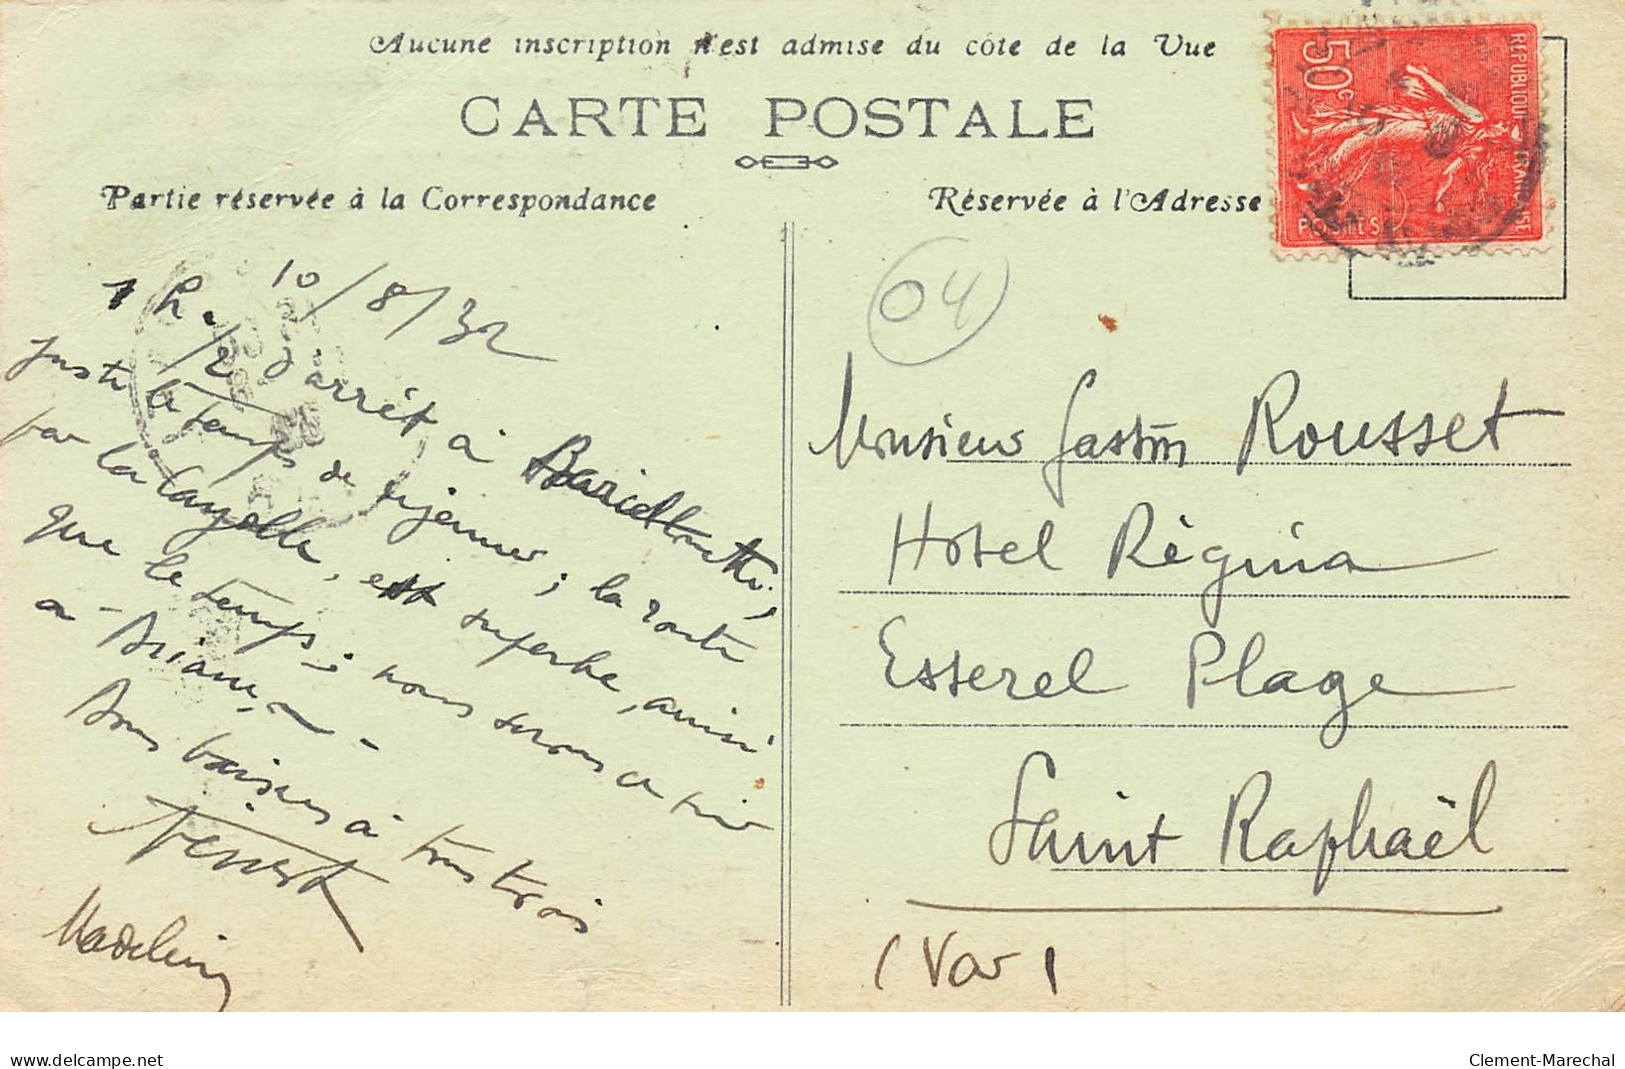 Aucune inscription n'est admise du côté de la Vue
CARTE POSTALE
Partie réservée à la Correspondance
Réservée à l'Adresse
50c
REPUBLIQUE FRANCAISE
POSTES
04
10/8/32
1 h. 1/2 d'arrêt à Barcelonnette,
juste le temps de déjeuner ; la route
par la Cayolle, est superbe, aussi
que le temps ; nous serons ce soir
à Briançon.
Bons baisers à tous trois
Madeleine
Monsieur Gaston Rousset
Hotel Régina
Esterel Plage
Saint Raphaël
(Var)
delcampe.net
Clement-Marechal